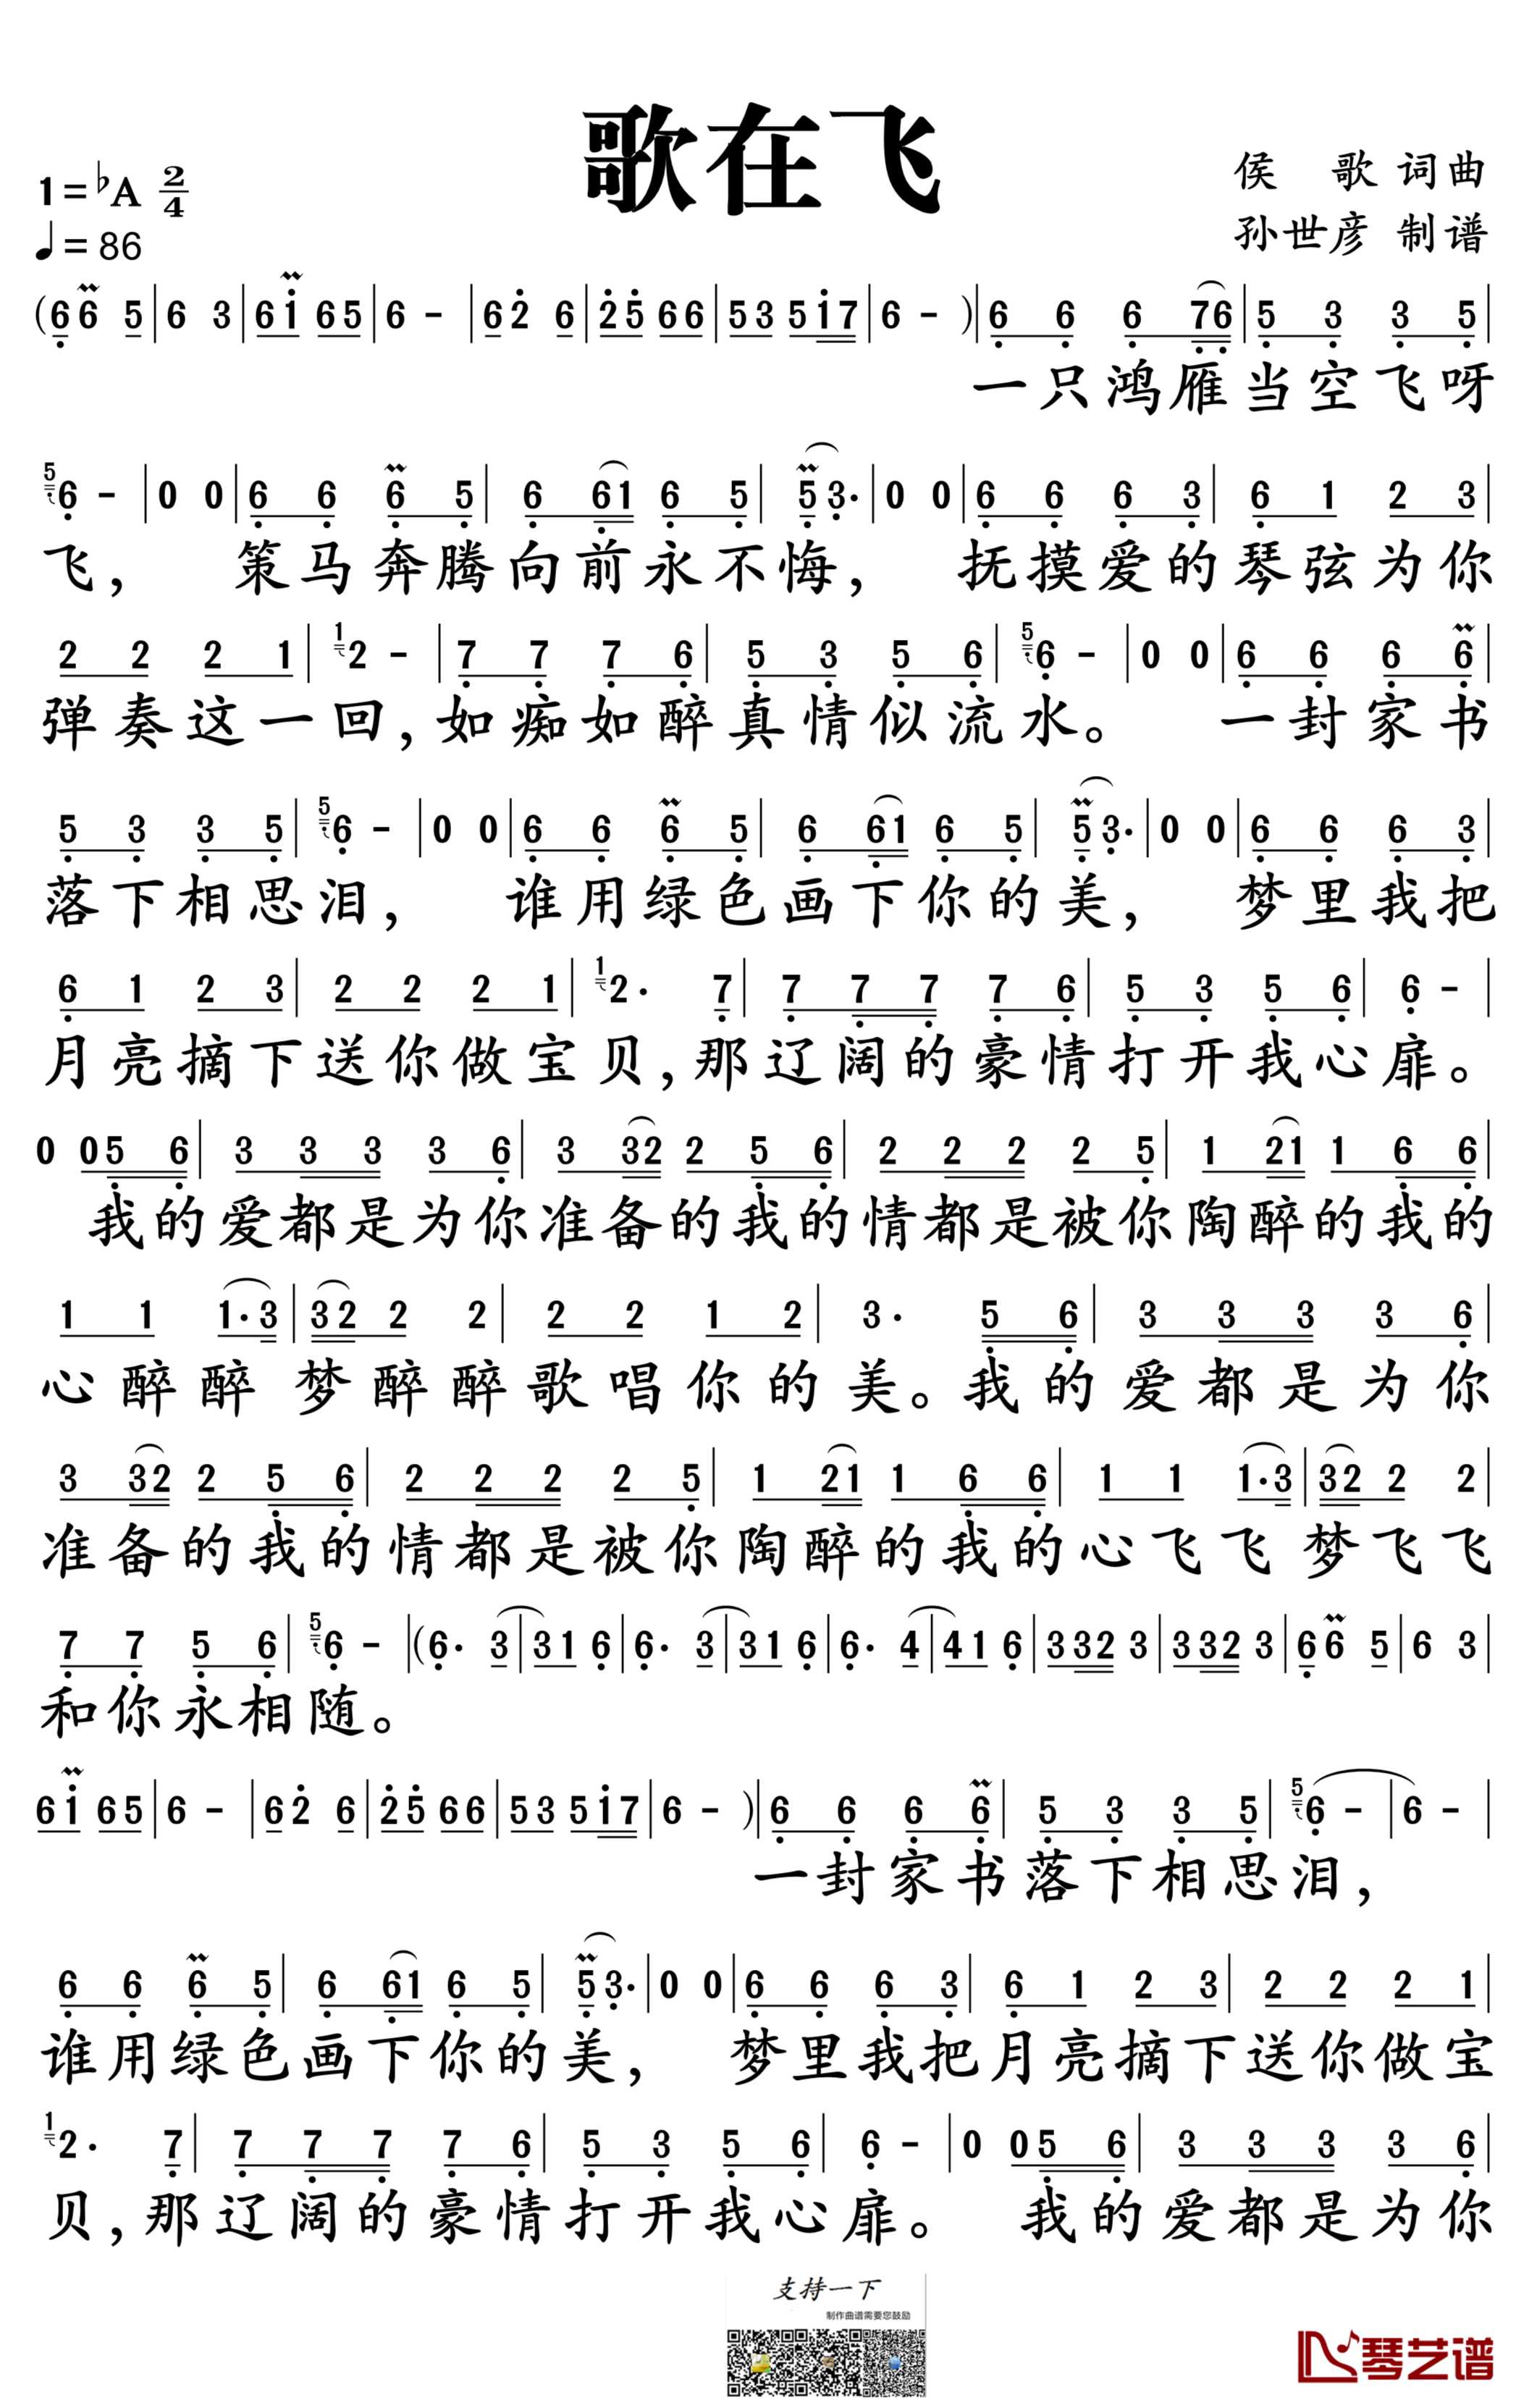 歌在飞
1=♭A 2/4
侯 歌 词曲
♩=86
孙世彦 制谱
(6 6 5|6 3|6 i 6 5|6 -|6 2 6|2 5 6 6|5 3 5 i 7|6 - )|6 6 6 7 6|5 3 3 5|
一只鸿雁当空飞呀
5 6 -|0 0|6 6 6 5|6 6 1 6 5|5 3.|0 0|6 6 6 3|6 1 2 3|
飞， 策马奔腾向前永不悔， 抚摸爱的琴弦为你
2 2 2 1|1 2 -|7 7 7 6|5 3 5 6|5 6 -|0 0|6 6 6 6|
弹奏这一回，如痴如醉真情似流水。 一封家书
5 3 3 5|5 6 -|0 0|6 6 6 5|6 6 1 6 5|5 3.|0 0|6 6 6 3|
落下相思泪， 谁用绿色画下你的美， 梦里我把
6 1 2 3|2 2 2 1|1 2. 7|7 7 7 7 6|5 3 5 6|6 -|
月亮摘下送你做宝贝，那辽阔的豪情打开我心扉。
0 0 5 6|3 3 3 3 6|3 3 2 2 5 6|2 2 2 2 5|1 2 1 1 6 6|
我的爱都是为你准备的我的情都是被你陶醉的我的
1 1 1. 3|3 2 2 2|2 2 1 2|3. 5 6|3 3 3 3 6|
心醉醉 梦醉醉歌唱你的美。我的爱都是为你
3 3 2 2 5 6|2 2 2 2 5|1 2 1 1 6 6|1 1 1. 3|3 2 2 2|
准备的我的情都是被你陶醉的我的心飞飞 梦飞飞
7 7 5 6|5 6 -|(6. 3|3 1 6|6. 3|3 1 6|6. 4|4 1 6|3 3 2 3|3 3 2 3|6 6 5|6 3|
和你永相随。
6 i 6 5|6 -|6 2 6|2 5 6 6|5 3 5 i 7|6 - )|6 6 6 6|5 3 3 5|5 6 -|6 -|
一封家书落下相思泪，
6 6 6 5|6 6 1 6 5|5 3.|0 0|6 6 6 3|6 1 2 3|2 2 2 1|
谁用绿色画下你的美， 梦里我把月亮摘下送你做宝
1 2. 7|7 7 7 7 6|5 3 5 6|6 -|0 0 5 6|3 3 3 3 6|
贝，那辽阔的豪情打开我心扉。 我的爱都是为你
支持一下
制作曲谱需要您鼓励
琴艺谱